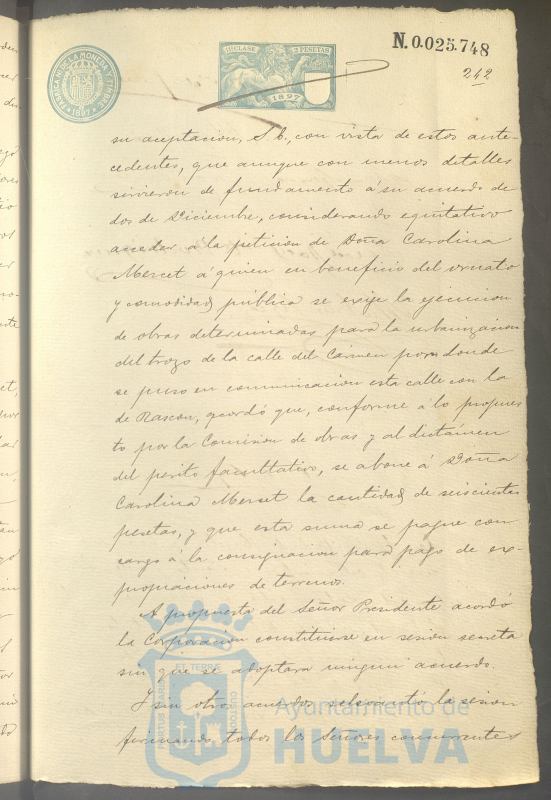 FABRICA NL. DE LA MONEDA Y TIMBRE
* 1897 *
11ª CLASE 2 PESETAS
1897
N.0.025.748
242
su aceptación, S. E., con vista de estos ante-
cedentes, que aunque con menos detalles
sirvieron de fundamento á su acuerdo de
dos de Diciembre, considerando equitativo
acceder á la petición de Doña Carolina
Merset á quien en beneficio del ornato
y comodidad pública se exije la ejecucion
de obras determinadas para la urbanizacion
del trozo de la calle del Carmen por donde
se puso en comunicacion esta calle con la
de Rascon, acordó que, conforme á lo propues
to por la Comision de obras y al dictámen
del perito facultativo, se abone á Doña
Carolina Merset la cantidad de seiscientas
pesetas, y que esta suma se pague con
cargo á la consignacion para pago de ex-
propiaciones de terrenos.
A propuesta del Señor Presidente acordó
la Corporacion constituirse en sesion secreta
sin que se adoptara ningun acuerdo.
Y sin otro acuerdo, selevantó la sesion
firmando todos los Señores concurrentes
ET TERRE
PORTUS MARIS
CUSTODIA
Ayuntamiento de
HUELVA